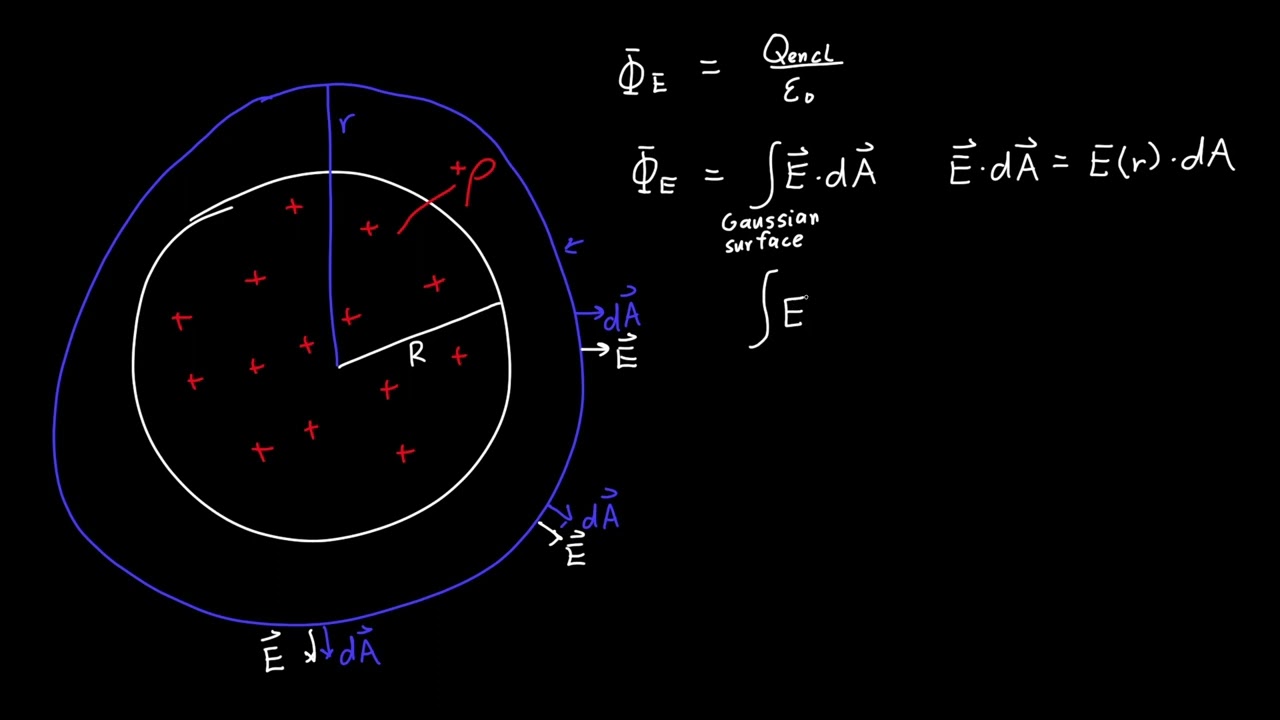 Φ_E = Qencl / ε₀
Φ_E = ∫ E⃗ · dA⃗ E⃗ · dA⃗ = E(r) · dA
Gaussian
surface
∫ E
r
+ρ
R
dA⃗
E⃗
dA⃗
E⃗
E⃗ dA⃗
+ + + + + + + + + + + + + +